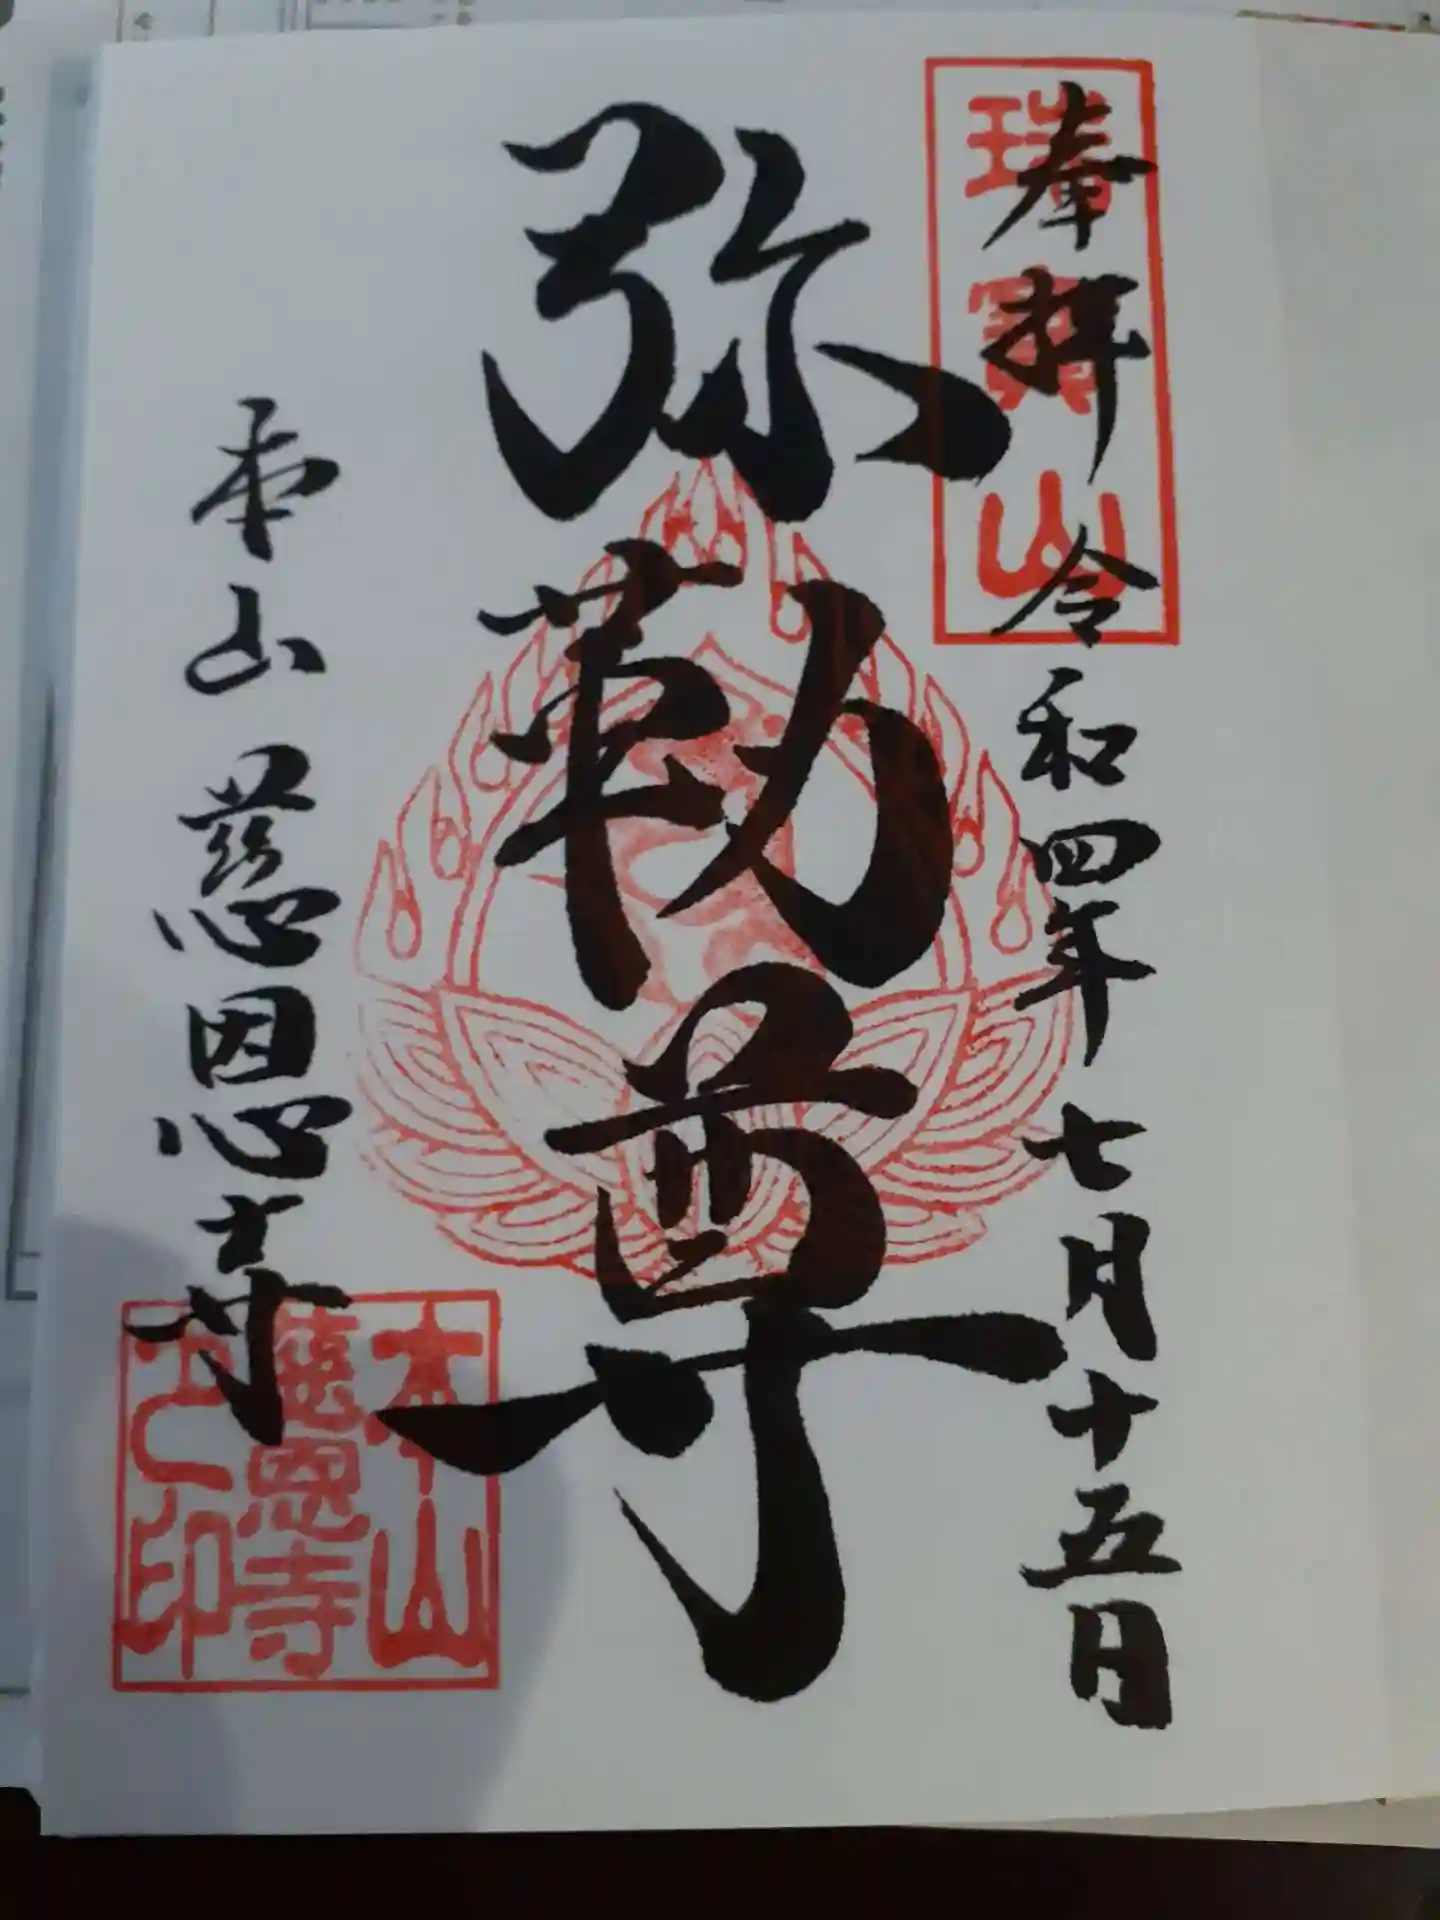 奉拝 令和四年七月十五日
瑞寳山
弥勒尊
本山慈恩寺
本山
慈恩寺
之印